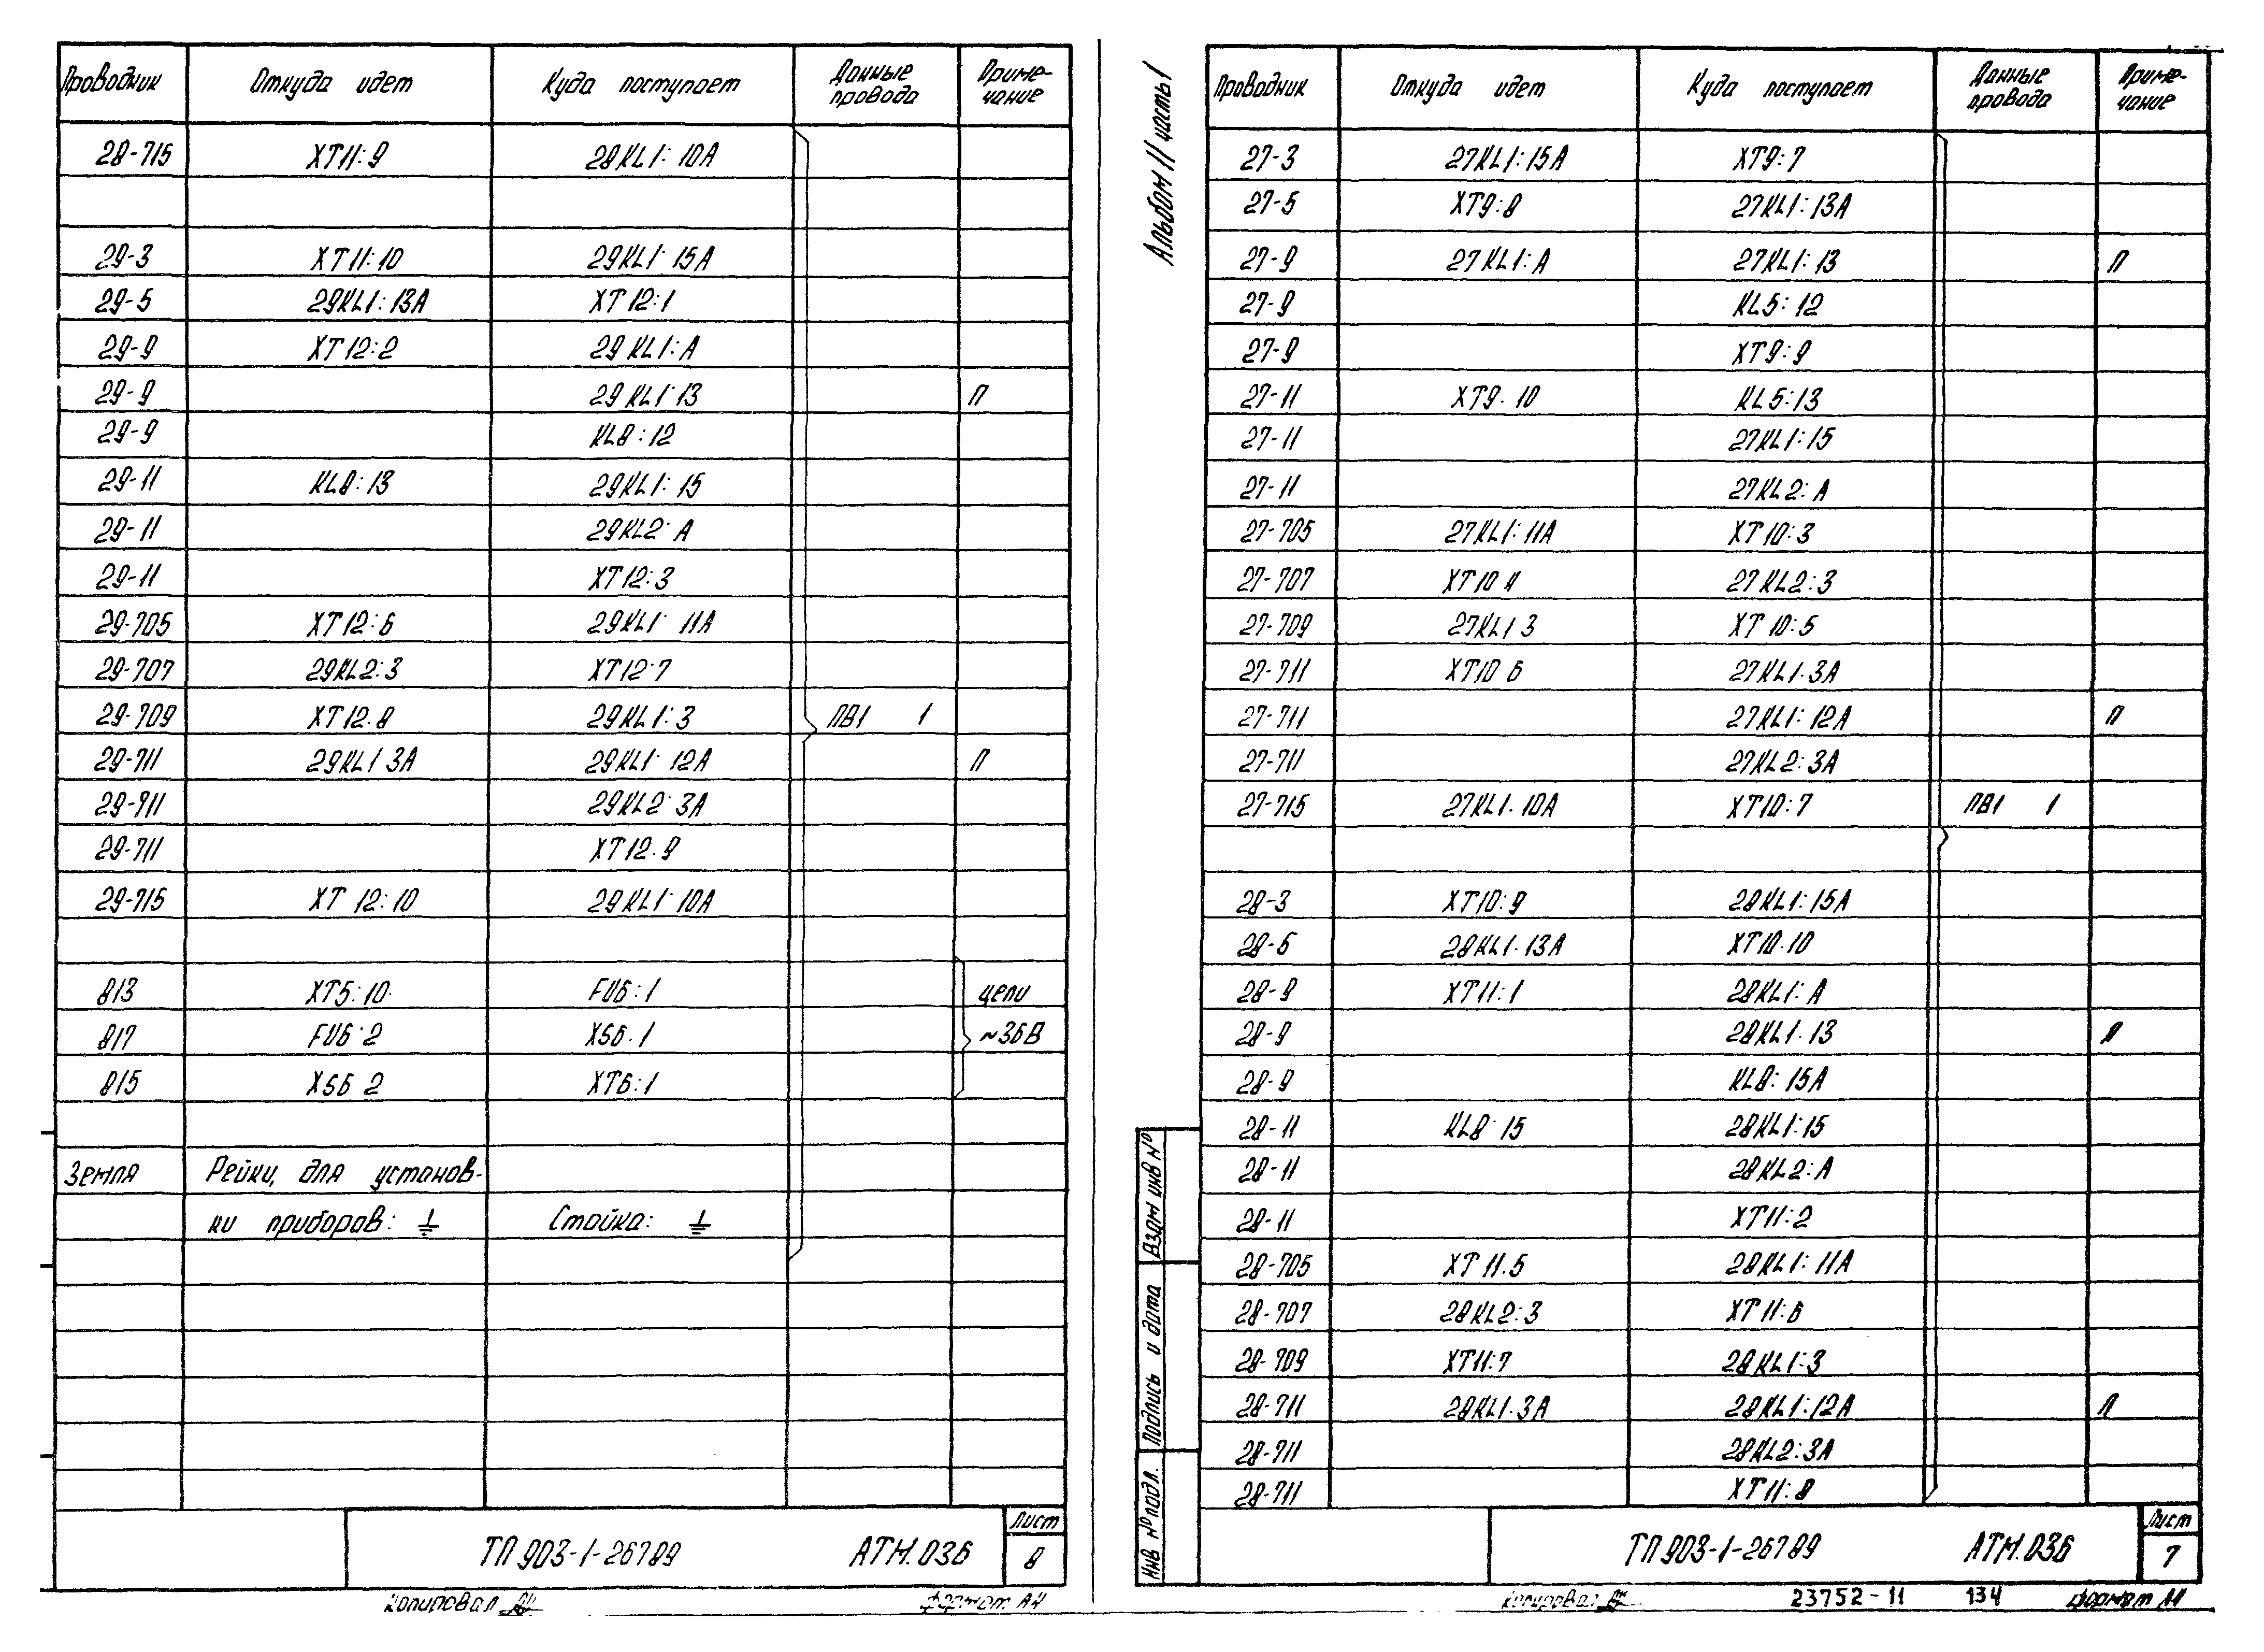 Проводник Откуда идет Куда поступает Данные провода Примечание
28-715 XT11:9 28KL1:10A
29-3 XT11:10 29KL1:15A
29-5 29KL1:13A XT12:1
29-9 XT12:2 29KL1:A
29-9 29KL1:13 П
29-9 KL8:12
29-11 KL8:13 29KL1:15
29-11 29KL2:A
29-11 XT12:3
29-705 XT12:6 29KL1:11A
29-707 29KL2:3 XT12:7
29-709 XT12.8 29KL1:3 ПВ1 1
29-711 29KL1 3A 29KL1:12A П
29-711 29KL2:3A
29-711 XT12.9
29-715 XT 12:10 29KL1:10A
813 XT5:10 FU6:1 цепи
817 FU6:2 XS6.1 ~36В
815 XS6 2 XT6:1
Земля Рейки, для установ-
ки приборов: Стойка:
ТП 903-1-267.89 АТМ.036 Лист 8
Копировал формат А4
Альбом 11 часть 1
Проводник Откуда идет Куда поступает Данные провода Примечание
27-3 27KL1:15A XT9:7
27-5 XT9:8 27KL1:13A
27-9 27KL1:A 27KL1:13 П
27-9 KL5:12
27-9 XT9:9
27-11 XT9.10 KL5:13
27-11 27KL1:15
27-11 27KL2:A
27-705 27KL1:11A XT10:3
27-707 XT10 4 27KL2:3
27-709 27KL1 3 XT10:5
27-711 XT10 6 27KL1.3A
27-711 27KL1:12A П
27-711 27KL2:3A
27-715 27KL1:10A XT10:7 ПВ1 1
28-3 XT10:9 28KL1:15A
28-5 28KL1.13A XT10.10
28-9 XT11:1 28KL1:A
28-9 28KL1.13 П
28-9 KL8:15A
28-11 KL8:15 28KL1:15
28-11 28KL2:A
28-11 XT11:2
28-705 XT11.5 28KL1:11A
28-707 28KL2:3 XT11:6
28-709 XT11:7 28KL1:3
28-711 28KL1.3A 28KL1:12A П
28-711 28KL2:3A
28-711 XT11:8
Взам инв №
Подпись и дата
Инв № подл.
ТП 903-1-267.89 АТМ.036 Лист 7
Копировал 23752-11 134 формат А4